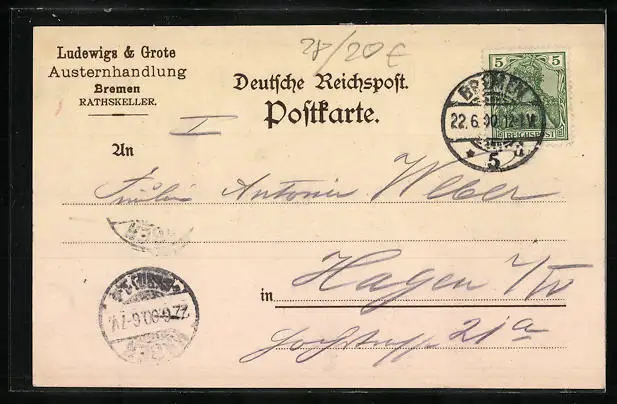 Ludewigs & Grote
Austernhandlung
Bremen
RATHSKELLER.
28/20€
Deutsche Reichspost.
Postkarte.
5 5
REICHSPOST
BREMEN
22.6.00.12-1V.
* 5 d
I
An
Antonie Weber
in Hagen i/W
21a